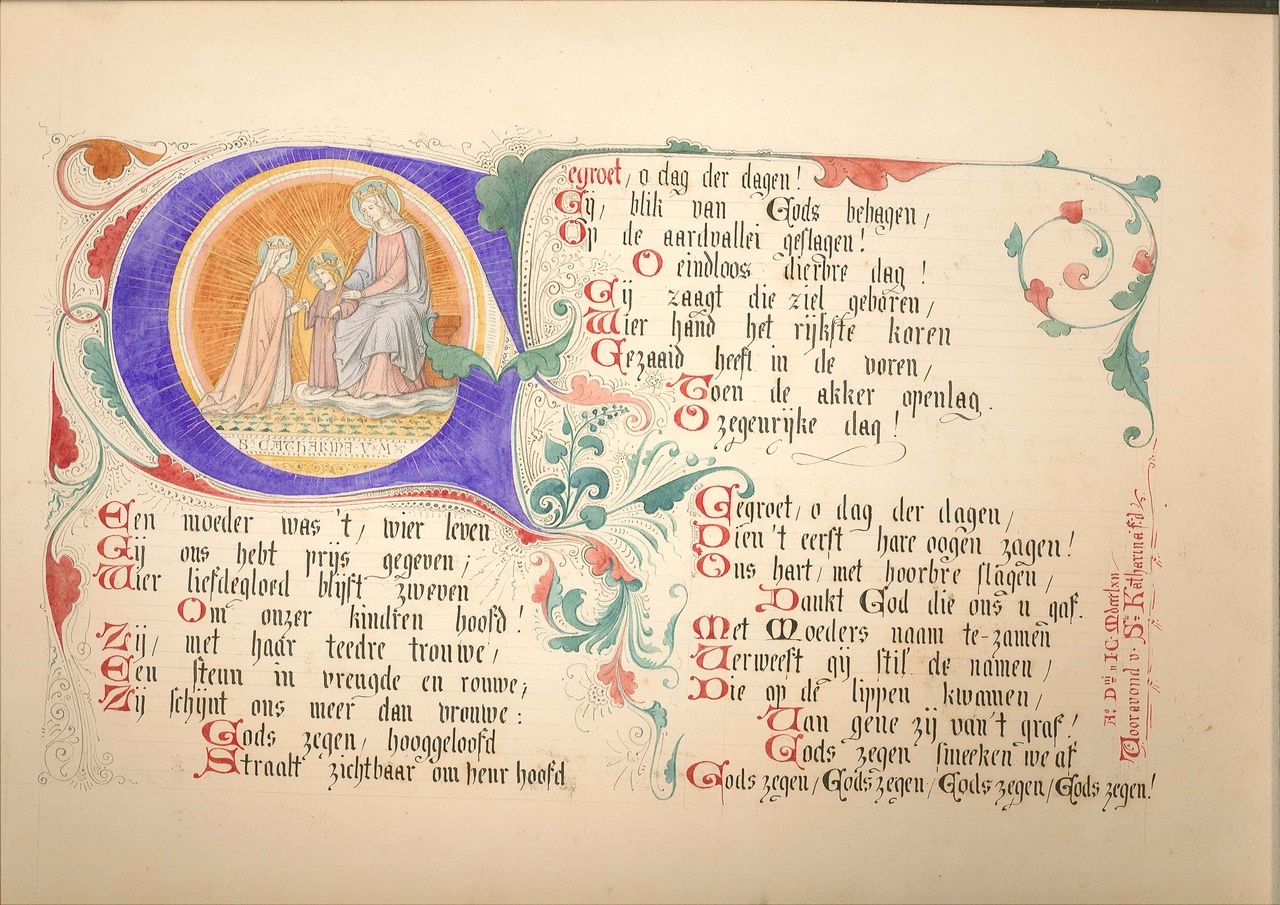 Gegroet, o dag der dagen!
Gij, blik van Gods behagen,
Op de aardvallei geslagen!
O eindloos dierbre dag!
Gij zaagt die ziel geboren,
Wier hand het rijkste koren
Gezaaid heeft in de voren,
Toen de akker openlag.
O zegenrijke dag!
S. CATHARINA V. M.
Een moeder was 't, wier leven
Gij ons hebt prijs gegeven;
Wier liefdegloed blijft zweven
Om onzer kindren hoofd!
Zij, met haar teedre trouwe,
Een steun in vreugde en rouwe;
Zij schijnt ons meer dan vrouwe:
Gods zegen, hooggeloofd
Straalt zichtbaar om heur hoofd
Gegroet, o dag der dagen,
Dien 't eerst hare oogen zagen!
Ons hart, met hoorbre slagen,
Dankt God die ons u gaf.
Met Moeders naam te-zamen
Verweest gij stil de namen,
Die op de lippen kwamen,
Van gene zij van 't graf!
Gods zegen smeeken we af
Gods zegen, Gods zegen, Gods zegen, Gods zegen!
Vooravond v. Ste Katharina